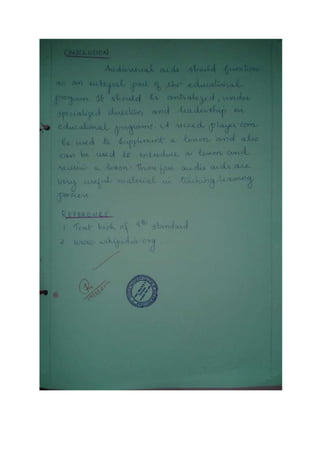 CONCLUSION
Audiovisual aids should function
as an integral part of the educational
program. It should be centralized, under
specialized direction and leadership in
educational programs. A record player can
be used to supplement a lesson and also
can be used to introduce a lesson and
review a lesson. Therefore audio aids are
very useful material in teaching learning
process.
REFERENCE
1. Text book of 9th standard
2. www.wikipedia.org